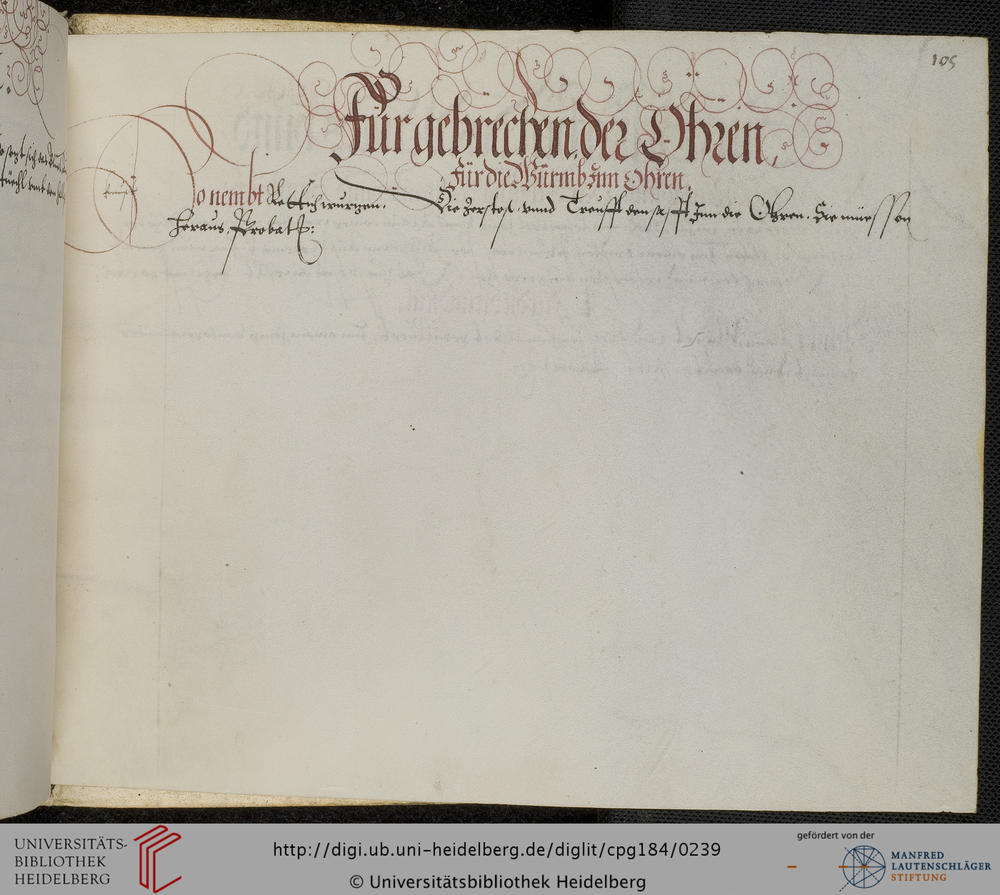 105
Für gebrechen der Ohren,
Für die Würmb Inn Ohren,
So nembt Rettich wurtzen. Die zerstos, vnnd Treufft den safft Inn die Ohren. Sie müessen
heraus, Probatum:
UNIVERSITÄTS-
BIBLIOTHEK
HEIDELBERG
http://digi.ub.uni-heidelberg.de/diglit/cpg184/0239
© Universitätsbibliothek Heidelberg
gefördert von der
MANFRED
LAUTENSCHLÄGER
STIFTUNG